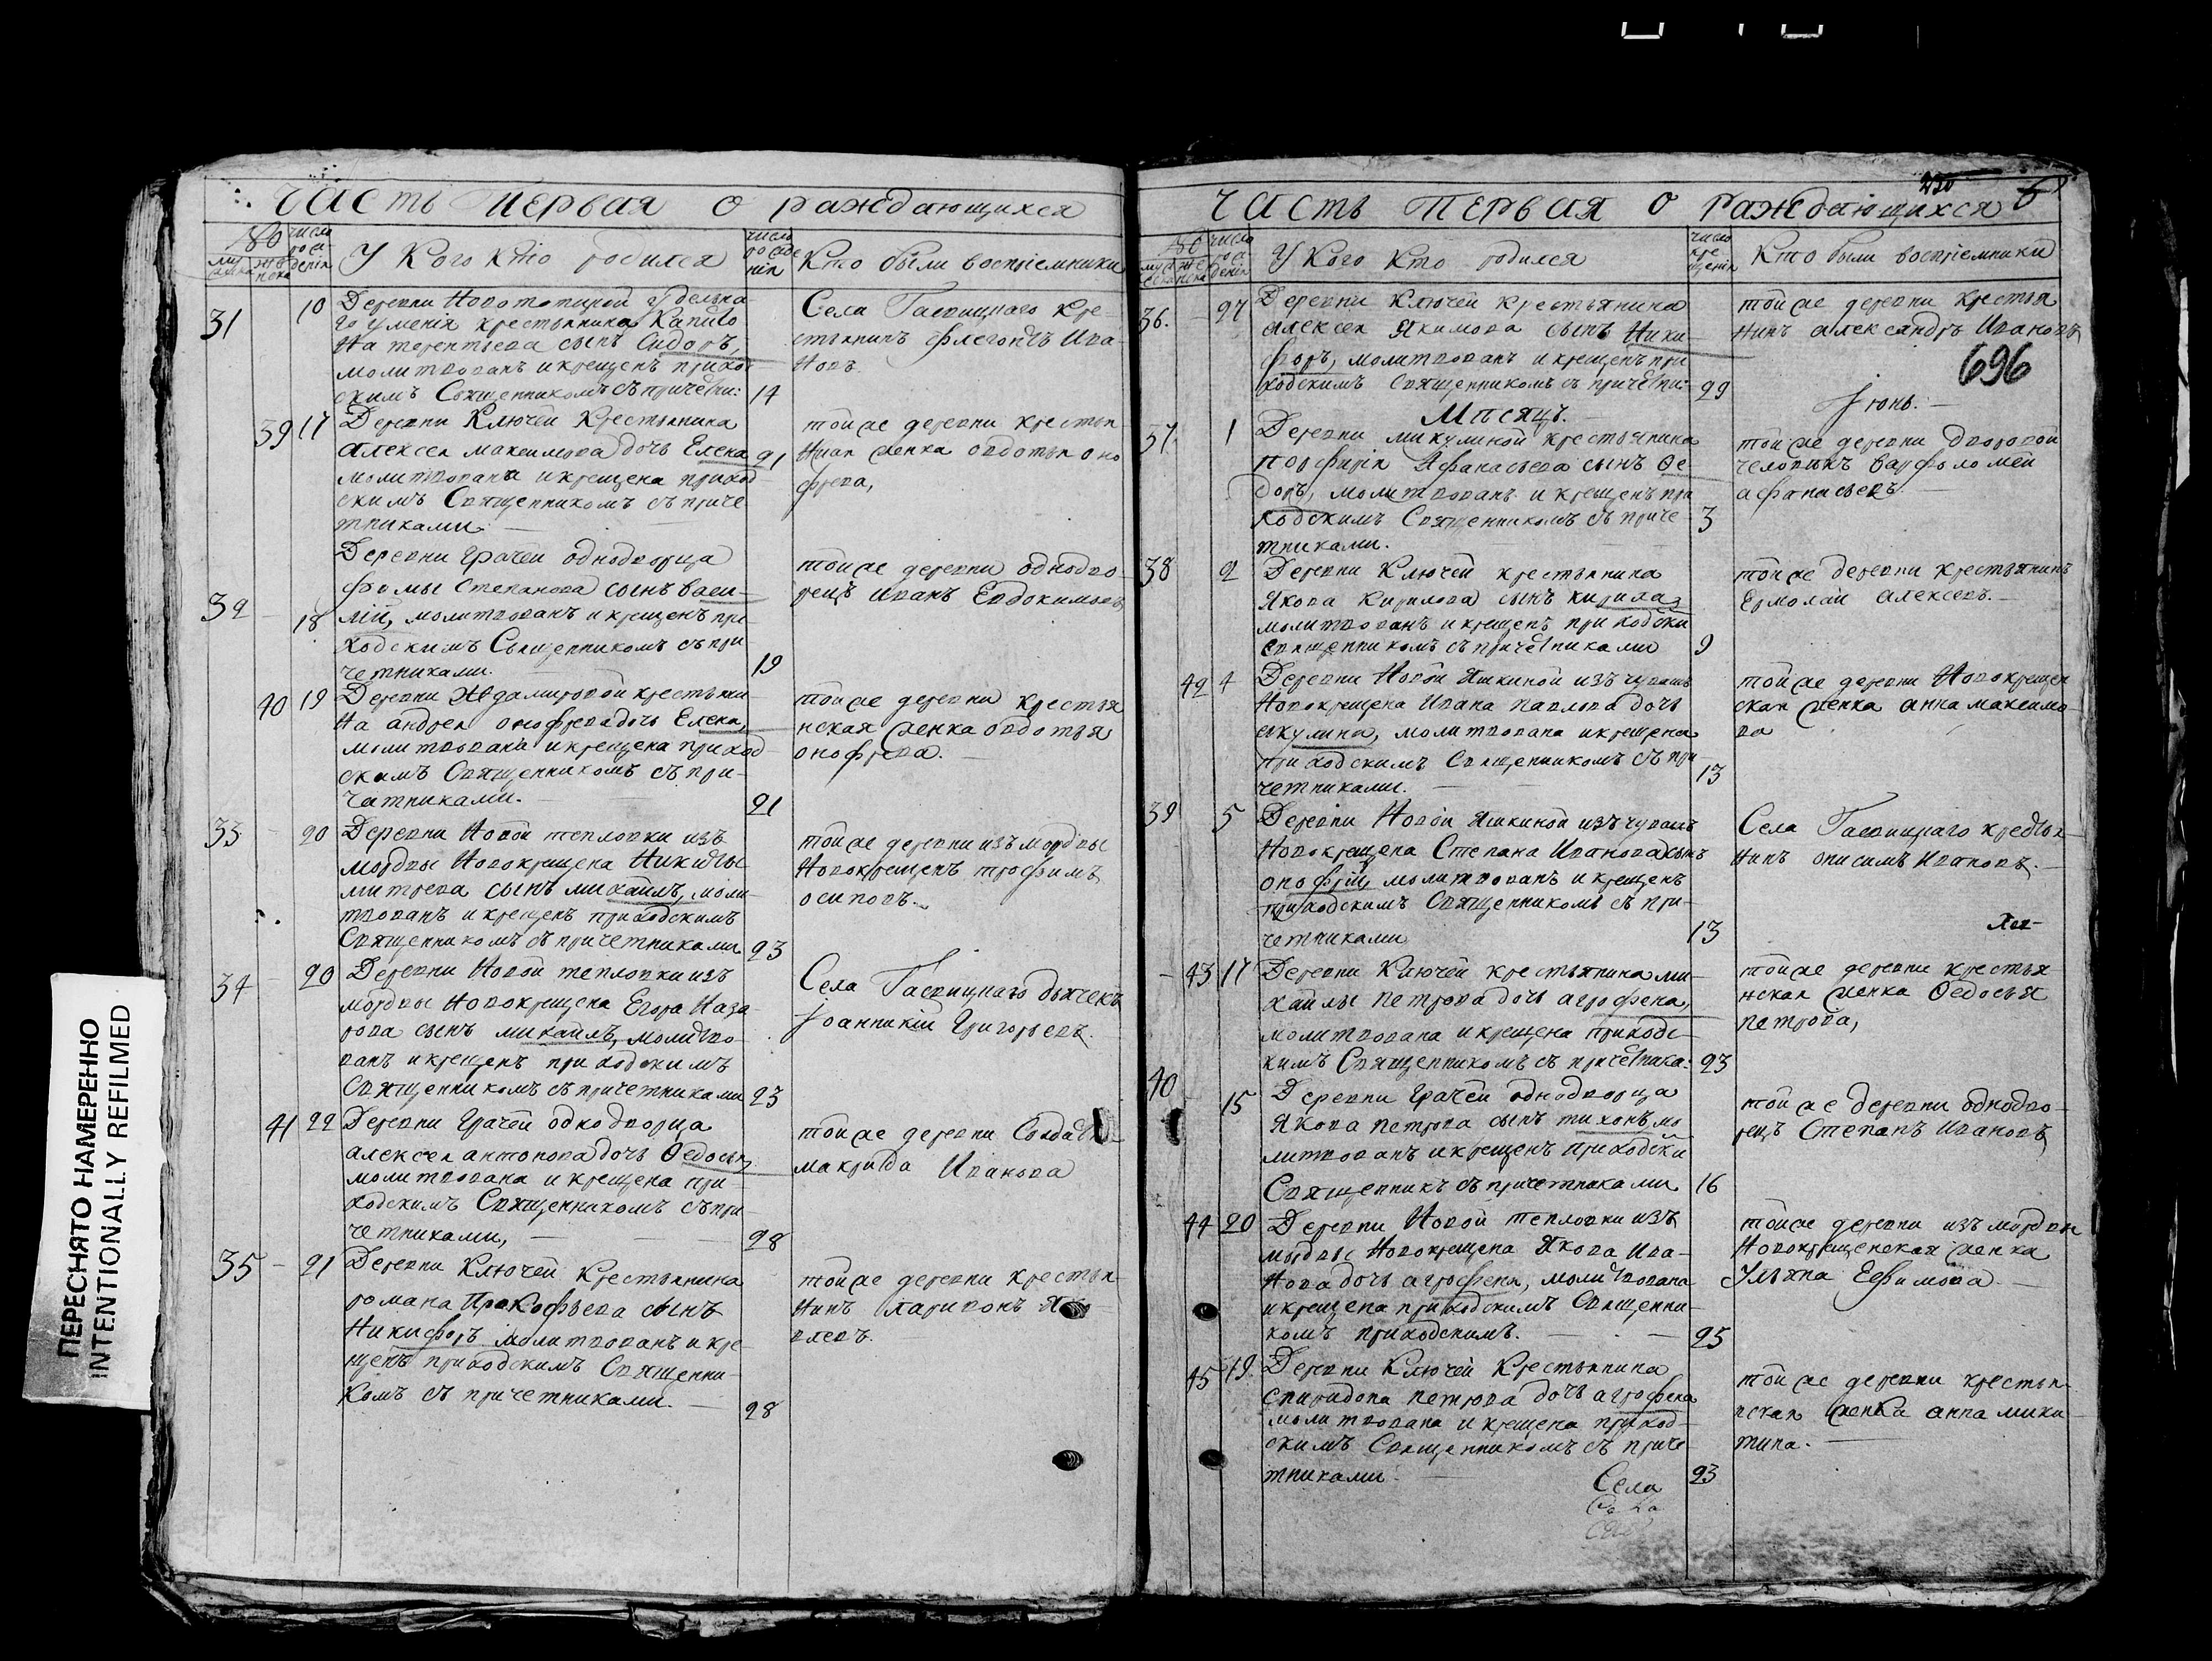 Часть первая о раждающихся
У Кого кто родился
Кто были восприемники
31
10
Деревни Новотоцкой Удельна
го Имения крестьянина Капито
на терентьева сынъ Сидоръ,
молитвованъ и крещенъ приход
скимъ Священникомъ съ причетни:
14
Села Гасвицкаго Кре-
стьянинъ Флегонтъ Ива-
новъ
39 17
Деревни Ключей Крестьянина
алексея максимова дочь Елена
21
молитвована и крещена приход
скимъ Священникомъ съ приче
тниками.
той же деревни крестья
нская женка овдотья оно
фрева,
Деревни Грачей однодворца
фомы Степанова сынъ Васи-
32
18
лій, молитвованъ и крещенъ при
ходскимъ Священникомъ съ при
четниками.
19
той же деревни однодво-
рецъ иванъ Евдокимовъ
40 19
на андрея онофрева дочь Елена,
молитвована и крещена приход-
скимъ Священникомъ съ при-
четниками.
21
той же деревни крестья
нская женка овдотья
онофрева.
33
20
Деревни Новой тепловки изъ
мордвы Новокрещена Никиты
митрева сынъ михаилъ, моли-
твованъ и крещенъ приходскимъ
Священникомъ съ причетниками
23
той же деревни изъ мордвы
Новокрещенъ трофимъ
осиповъ.
34
20
Деревни Новой тепловки изъ
мордвы Новокрещена Егора Наза
рова сынъ михаилъ, молитво-
ванъ и крещенъ приходскимъ
Священникомъ съ причетниками
23
Села Гасвицкаго дьячекъ
Іоанникій Григорьевъ.
41 22
Деревни Грачей однодворца
алексея антонова дочь Федосья
молитвована и крещена при-
ходскимъ Священникомъ съ при
четниками,
28
той же деревни
макрида Иванова
35
21
Деревни Ключей Крестьянина
романа Прокофьева сынъ
Никифоръ молитвованъ и кре-
щенъ приходскимъ Священни-
комъ съ причетниками.
28
той же деревни крестья-
нинъ ларионъ
влевъ.
ПЕРЕСНЯТО НАМЕРЕННО
INTENTIONALLY REFILMED
Часть Первая о Раждающихся
230
У Кого Кто родился
Кто были восприемники
36.
27
Деревни Ключей крестьянина
алексея Якимова сынъ Ники-
форъ, молитвованъ и крещенъ при
ходскимъ Священникомъ съ причетни:
29
той же деревни крестья
нинъ александръ Ивановъ
696
Мѣсяцъ.
Іюнь.
37.
1
Деревни микулиной крестьянина
Порфирія Афанасьева сынъ Фе-
доръ, молитвованъ и крещенъ при
ходскимъ Священникомъ съ приче-
3
тниками.
той же деревни дворовой
человѣкъ варфоломей
афанасьевъ.
38
2
Деревни Ключей крестьянина
Якова Кирилова сынъ кирила
молитвованъ и крещенъ приходски
Священникомъ съ причетниками
9
той же деревни крестьянинъ
Ермолай алексеевъ.
42 4
Деревни Новой Яшкиной изъ чувашъ
Новокрещена Ивана павлова дочь
акулина, молитвована и крещена
приходскимъ Священникомъ съ при
13
четниками.
той же деревни Новокрещен
ская женка анна максимо-
ва
39
5
Деревни Новой Яшкиной изъ чувашъ
Новокрещена Степана Иванова сынъ
онофрій, молитвованъ и крещенъ
приходскимъ Священникомъ съ при-
четниками
13
Села Гасвицкаго крестья-
нинъ анисимъ Ивановъ.
43 17
Деревни Ключей крестьянина ми-
хайлы петрова дочь агрофена,
молитвована и крещена приходс-
кимъ Священникомъ съ причетника:
23
той же деревни крестья
нская женка Федосья
петрова,
40
15
Деревни Грачей однодворца
Якова петрова сынъ тихонъ, мо
литвованъ и крещенъ приходски
Священникъ съ причетниками
16
той же деревни однодво-
рецъ Степанъ Ивановъ
44 20
Деревни Новой тепловки изъ
мордвы Новокрещена Якова Ива-
нова дочь агрофена, молитвована
и крещена приходскимъ Священни-
комъ приходскимъ.
25
той же деревни изъ мордвы
Новокрещенская женка
Ульяна Ефимова
45 19
Деревни Ключей Крестьянина
спиридона петрова дочь агрофена
молитвована и крещена приход-
скимъ Священникомъ съ приче-
тниками.
23
той же деревни крестья-
нская женка анна мики-
тина.
Села